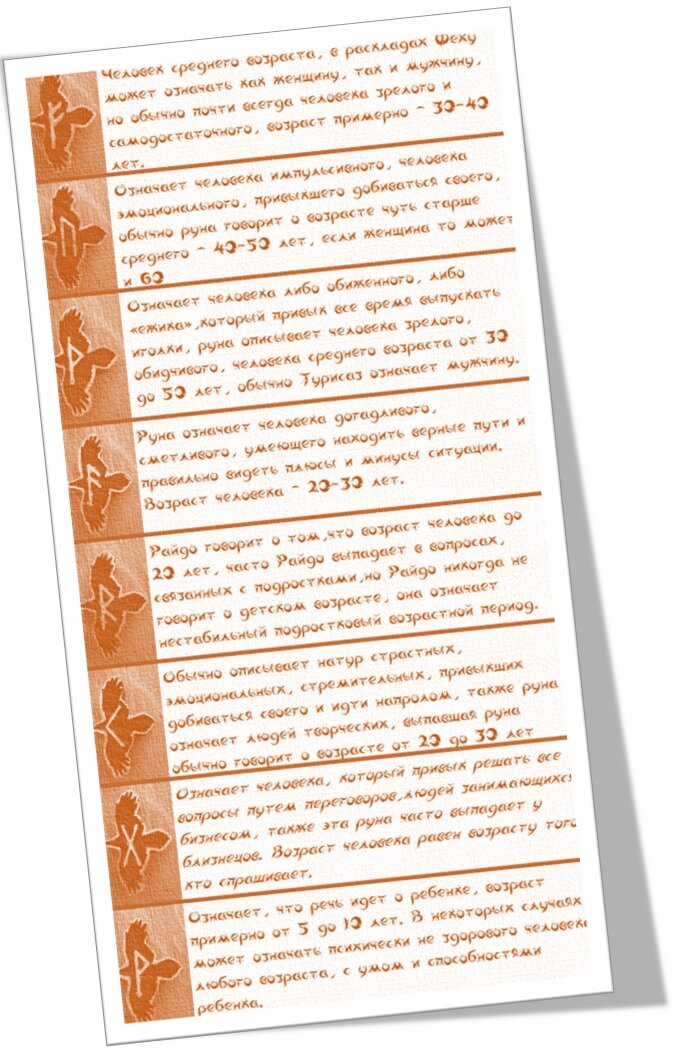 Человек среднего возраста, в раскладах Феху
может означать как женщину, так и мужчину,
но обычно почти всегда человека зрелого и
самодостаточного, возраст примерно - 30-40
лет.
Означает человека импульсивного, человека
эмоционального, привыкшего добиваться своего,
обычно руна говорит о возрасте чуть старше
среднего - 40-50 лет, если женщина то может
и 60
Означает человека либо обиженного, либо
«ежика»,который привык все время выпускать
иголки, руна описывает человека зрелого,
обидчивого, человека среднего возраста от 30
до 50 лет, обычно Турисаз означает мужчину.
Руна означает человека догадливого,
сметливого, умеющего находить верные пути и
правильно видеть плюсы и минусы ситуации.
Возраст человека - 20-30 лет.
Райдо говорит о том,что возраст человека до
20 лет, часто Райдо выпадает в вопросах,
связанных с подростками,но Райдо никогда не
говорит о детском возрасте, она означает
нестабильный подростковый возрастной период.
Обычно описывает натур страстных,
эмоциональных, стремительных, привыкших
добиваться своего и идти напролом, также руна
означает людей творческих, выпавшая руна
обычно говорит о возрасте от 20 до 30 лет
Означает человека, который привык решать все
вопросы путем переговоров,людей занимающихся
бизнесом, также эта руна часто выпадает у
близнецов. Возраст человека равен возрасту того
кто спрашивает.
Означает, что речь идет о ребенке, возраст
примерно от 5 до 10 лет. В некоторых случаях
может означать психически не здорового человека
любого возраста, с умом и способностями
ребенка.